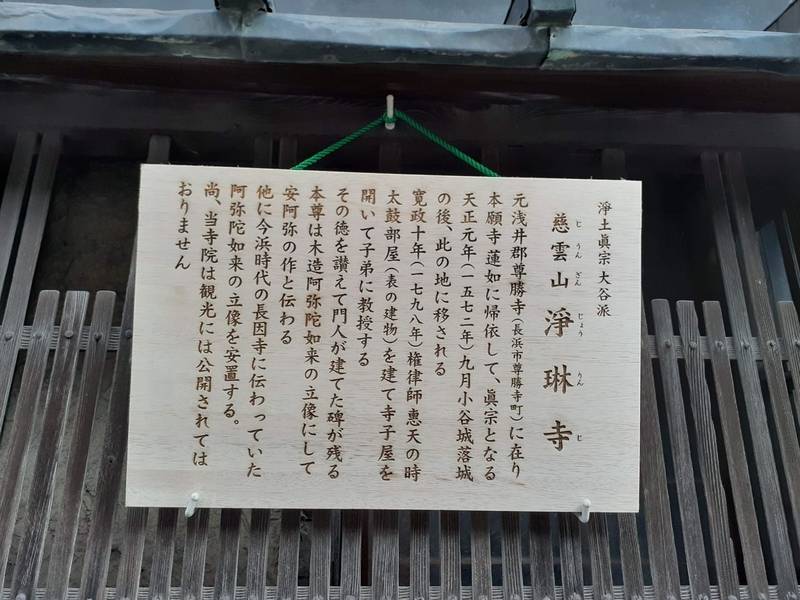 淨土眞宗 大谷派
慈雲山 淨琳寺
じうんざん じょうりんじ
元浅井郡尊勝寺(長浜市尊勝寺町)に在り
本願寺 蓮如に帰依して、眞宗となる
天正元年(一五七二年)九月小谷城落城
の後、此の地に移される
寛政十年(一七九八年)権律師 惠天の時
太鼓部屋(表の建物)を建て寺子屋を
開いて子弟に教授する
その徳を讃えて門人が建てた碑が残る
本尊は木造阿弥陀如来の立像にして
安阿弥の作と伝わる
他に今浜時代の長因寺に伝わっていた
阿弥陀如来の立像を安置する。
尚、当寺院は観光には公開されては
おりません